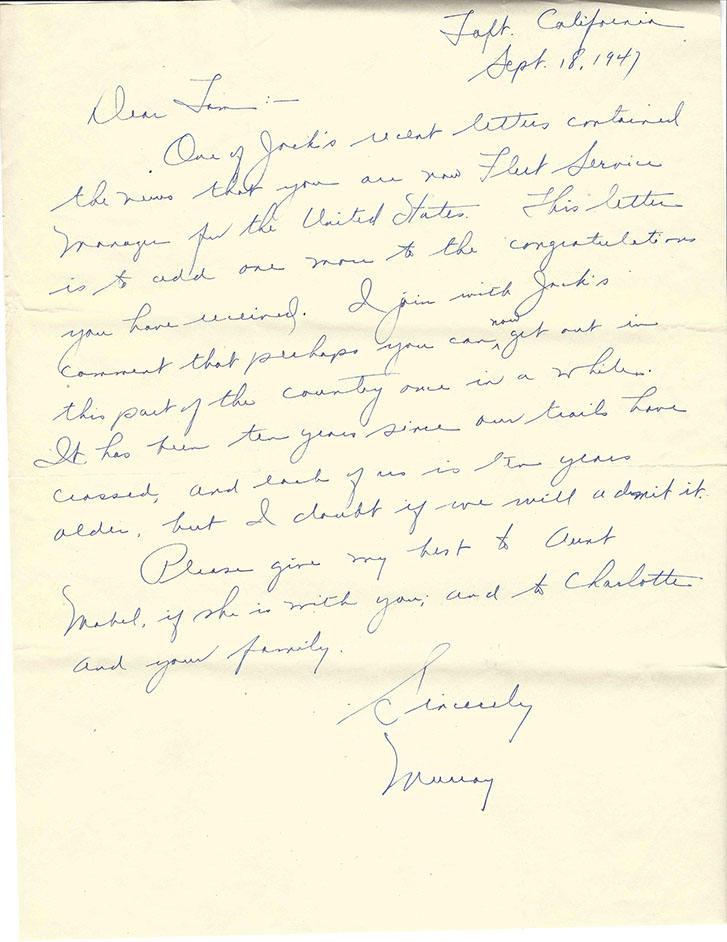 Taft. California
Sept. 18, 1947
Dear Tom:—
One of Jack's recent letters contained
the news that you are now Fleet Service
Manager for the United States. This letter
is to add one more to the congratulations
you have received. I join with Jack's
comment that perhaps you can now get out in
this part of the country once in a while.
It has been ten years since our trails have
crossed, and each of us is ten years
older, but I doubt if we will admit it.
Please give my best to Aunt
Mabel, if she is with you; and to Charlotte
and your family.
Sincerely
Murray